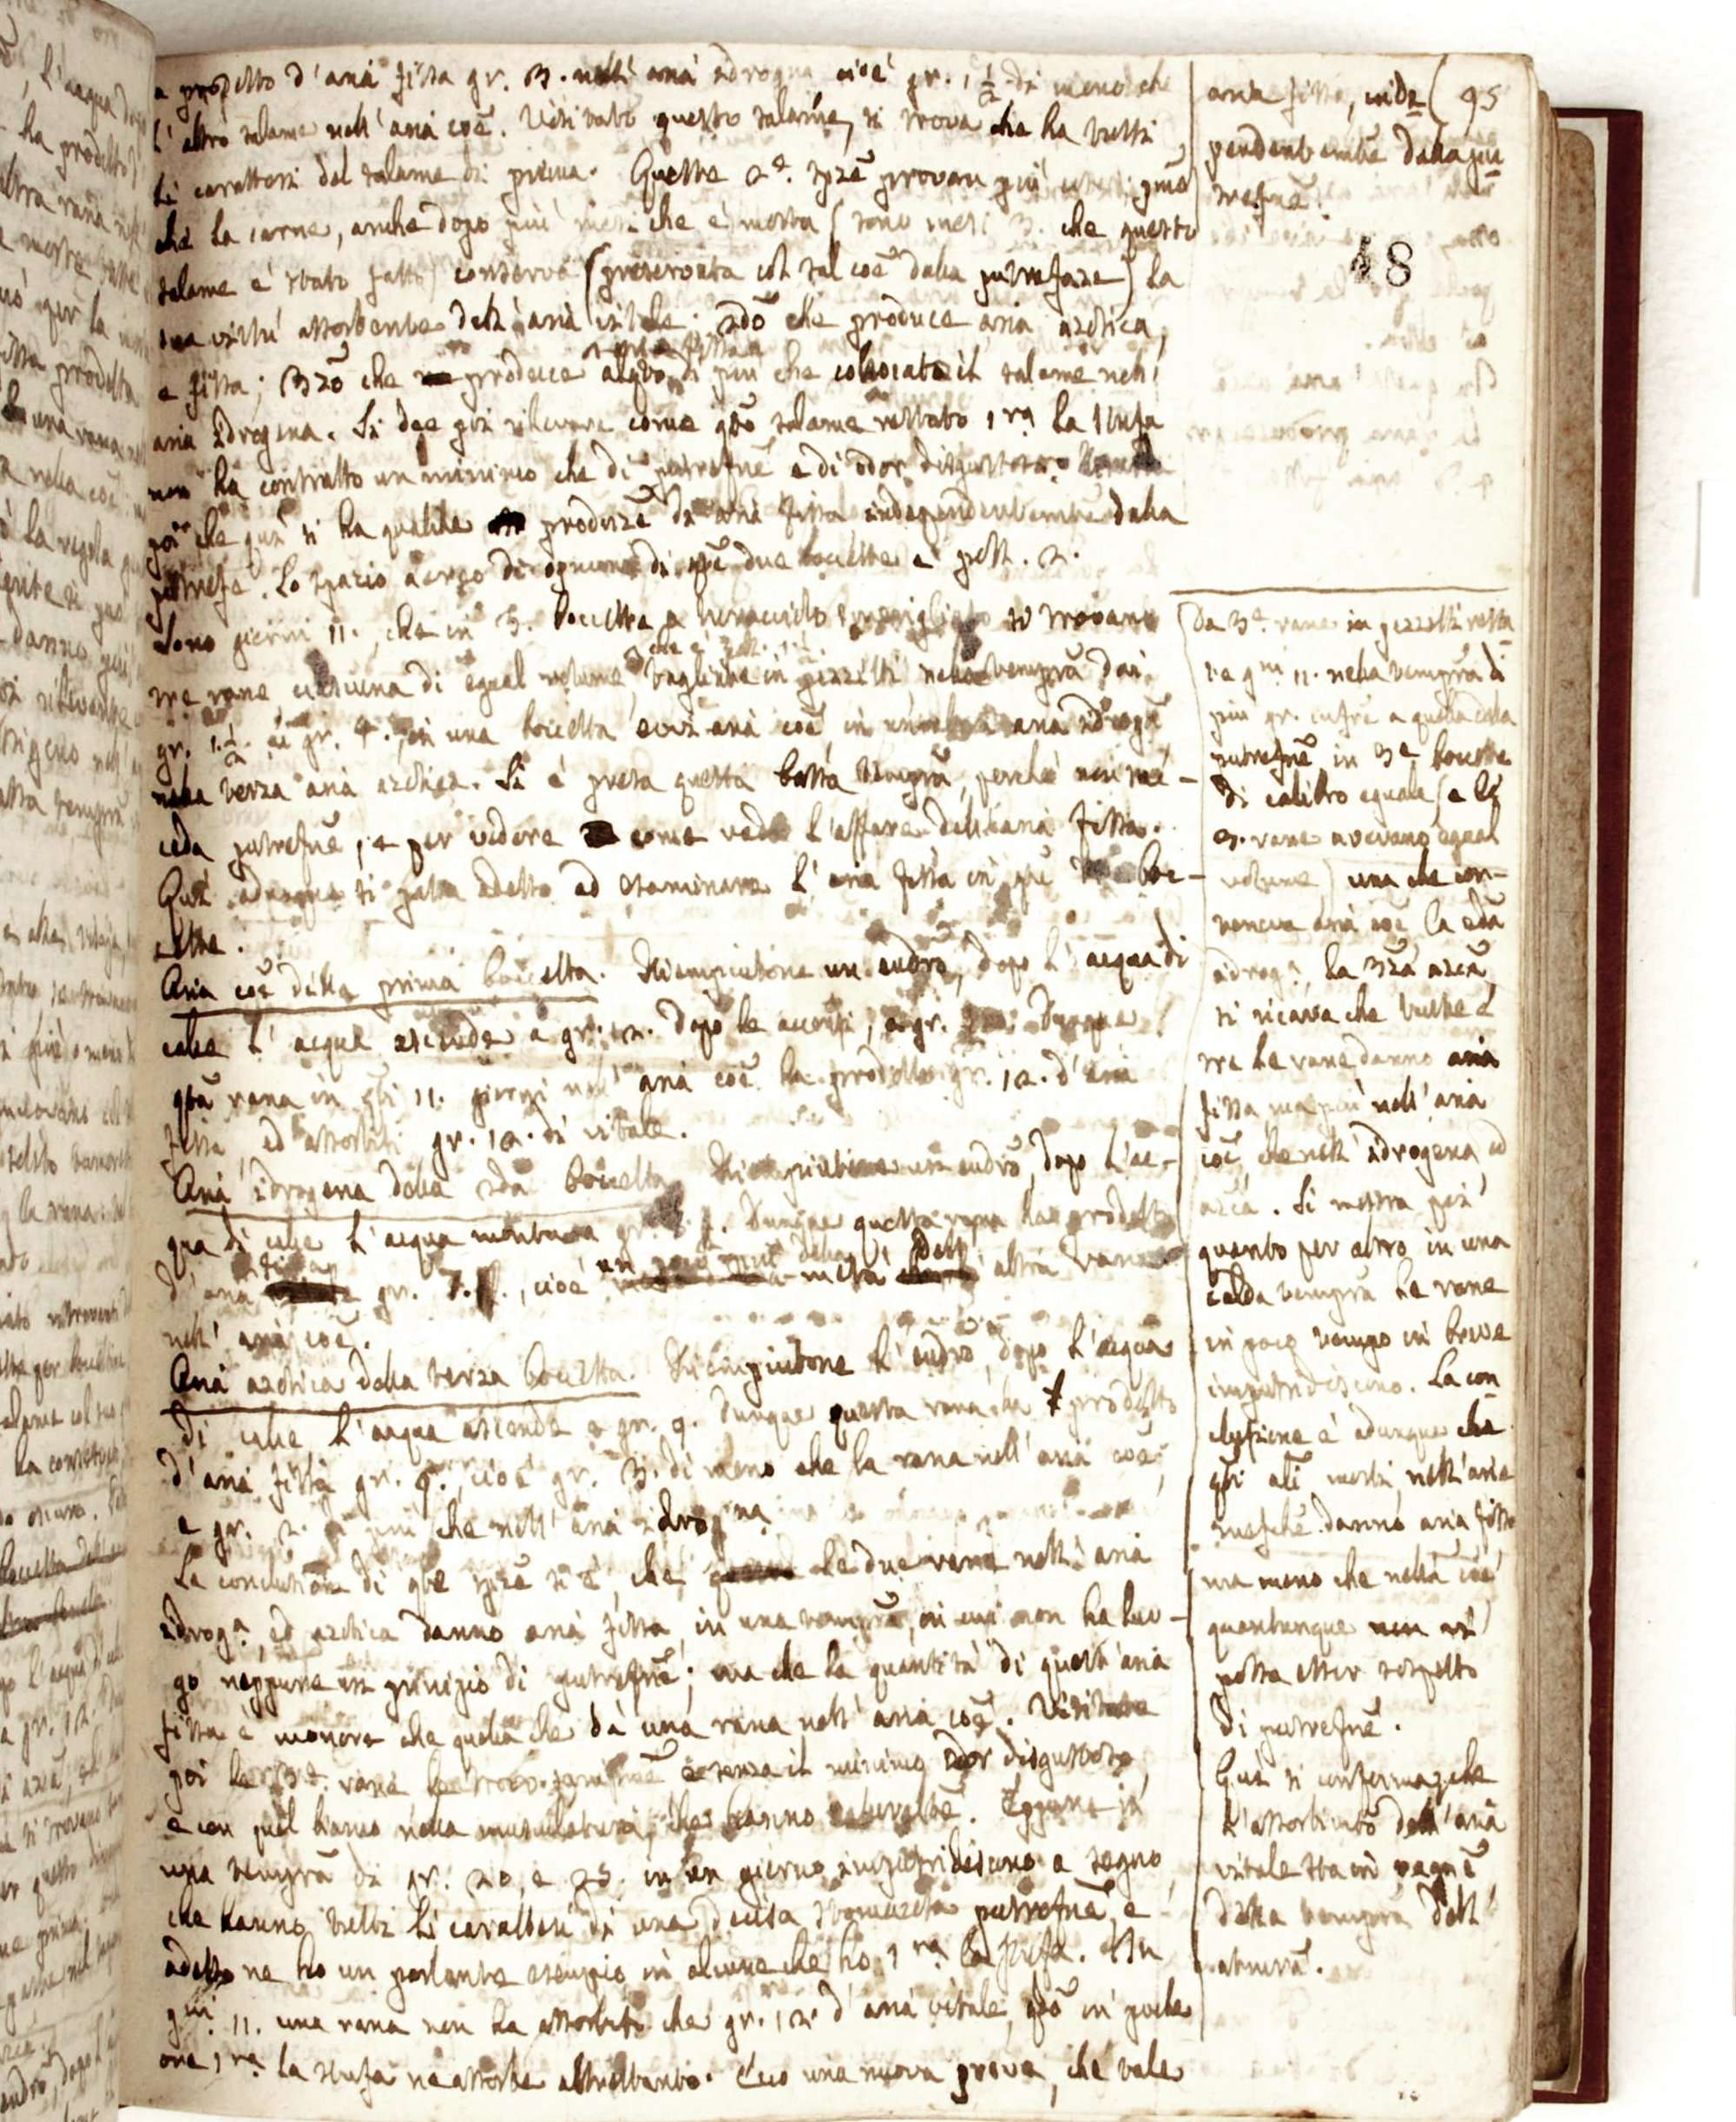 a prodotto d'aria fissa gr. 3. nell' aria idrogena cioè gr. 1 1/2 di meno che
l' altro salame nell' aria coẽ. Visitato questo salame, si trova che ha tutti
li caratteri del salame di prima. Queste 2e. spzẽ provan più
che la carne, anche dopo più mesi che è morta (sono mesi 3. che questo
salame è stato fatto) conserva (preservata coll sal coẽ dalla putrefaze) la
sua virtù assorbente dell' aria vitale; 2dõ che produce aria azotica,
e fissa; 3zõ che produce di più che collocato il salame nell'
aria idrogena. Si dee poi rilevare come qõ salame restato 1ra la stufa
non ha contratto un minimo che di putrefnẽ e di odor disgustoso.
poi che quì si ha qualche produzẽ di aria fissa independentemẽ dalla
putrefe. Lo spazio aereo di ognuna di qẽ due boccette è poll. 2.
Sono giorni 11., che in 3. boccette a si trovano
tre rane, ciascuna di egual volume, tagliate in pezzetti, nella tempra dai
che è poll. 1 1/2
gr. 1. 1/2 ai gr. 4., in una boccetta evvi aria coẽ in un' altra aria idrogẽ
nella terza aria azotica. Si è presa questa bassa temprã, perchè non suc-
ceda putrefnẽ, e per vedere come vada l'affare dell' aria fissa.
Quì adunque si passa adesso ad esaminare l' aria fissa in qẽ tre boc-
cette.
Aria coẽ della prima boccetta. Riempiutone un eudrõ, dopo l' acqua di
calce l' acqua ascende a gr. 12. dopo le accensi, a gr. Dunque
qõa rana in qõi 11. giorni nell' aria coẽ ha prodotto gr. 12. d'aria
fissa, ed assorbiti gr. 12. di vitale.
Aria idrogena della 2da boccetta. Riempiutone un eudrõ, dopo l' ac-
qua di calce l' acqua montava gr. Dunque questa rana ha prodotto
d' aria fissa gr. 7., cioè un poco più della metà dell' altra rana
nell' aria coẽ.
Aria azotica della terza boccetta. Riempiutone l' eudrõ, dopo l' acqua
di calce l' acqua ascende a gr. 9. Dunque questa rana ha prodotto
d' aria fissa gr. 9., cioè gr. 3. di meno che la rana nell' aria coẽ,
e gr. 2. di più che nell' aria idrogna
La conclusione di qõe spzẽ si è, che le due rane nell' aria
idroga, ed azotica danno aria fissa, in una temprã, in cui non ha luo-
go neppure un principio di putrefnẽ; ma che la quantità di quest' aria
fissa è minore che quella che dà una rana nell' aria coẽ. Visitate
poi le 3e. rane le trovo senza il minimo odor disgustoso,
e con quel bianco nella musculatura, che hanno naturalmẽ. Eppure in
una temprã di gr. 20, e 25. in un giorno imputridiscono a segno
che hanno tutti li caratteri di una decisa putrefnẽ, e
adesso ne ho un parlante esempio in alcune che ho 1ra la stufa. In
gni 11. una rana non ha assorbito che gr. 12. d' aria vitale, qdõ in poche
ore 1ra la stufa ne assorbe altrettanto. Ecco una nuova prova, che vale
aria fissa, inde- ( 95
pendentemẽ dalla pu-
trefnẽ.
48
Da 3e. rane in pezzetti resta-
te gni 11. nella temprã di
più gr. infrẽ a quella della
putrefnẽ, in 3e boccette
di calibro eguale (e le
3. rane avevano egual
volume) una che con-
teneva aria coẽ la 2dã
idroga, la 3zã azcã,
si ricava che tutte e
tre le rane danno aria
fissa, ma più nell' aria
coẽ, che nell' idrogena, ed
azcã. Si mostra poi
quanto per altro in una
calda temprã le rane
in poco tempo in breve
imputridiscono. La con-
clusione è adunque che
qõi ali morti nell' arie
mefchẽ danno aria fissa
ma meno che nella coẽ
quantunque non vi
possa esser sospetto
di putrefnẽ.
Quì si conferma che
l' assorbimto dell' aria
vitale sta in ragnẽ
della temprã dell'
atmosrã.